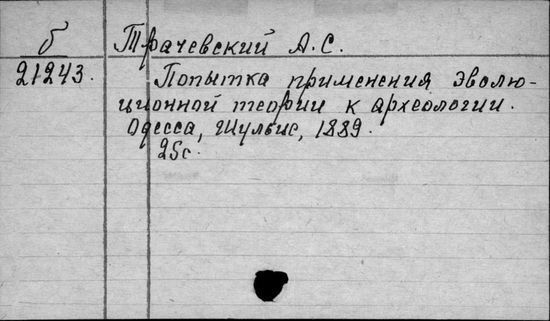 б Трачевский А.С.
21243. Попытка применения эволю-
ционной теории к археологии.
Одесса, Шульис, 1889.
25с.